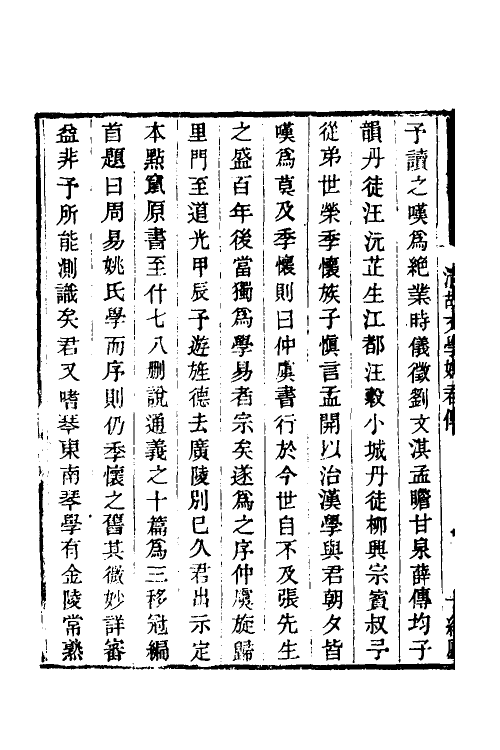 予讀之嘆爲絶業時儀徵劉文淇孟瞻甘泉薛傳均子
韻丹徒汪沅芷生江都汪穀小城丹徒柳興宗賓叔予
從弟世榮季懷族子愼言孟開以治漢學與君朝夕皆
嘆爲莫及季懷則曰仲虞書行於今世自不及張先生
之盛百年後當獨爲學易者宗矣遂爲之序仲虞旋歸
里門至道光甲辰予遊旌德去廣陵別已久君出示定
本點竄原書至什七八刪說通義之十篇爲三移冠編
首題曰周易姚氏學而序則仍季懷之舊其微妙詳審
益非予所能測識矣君又嗜琴東南琴學有金陵常熟